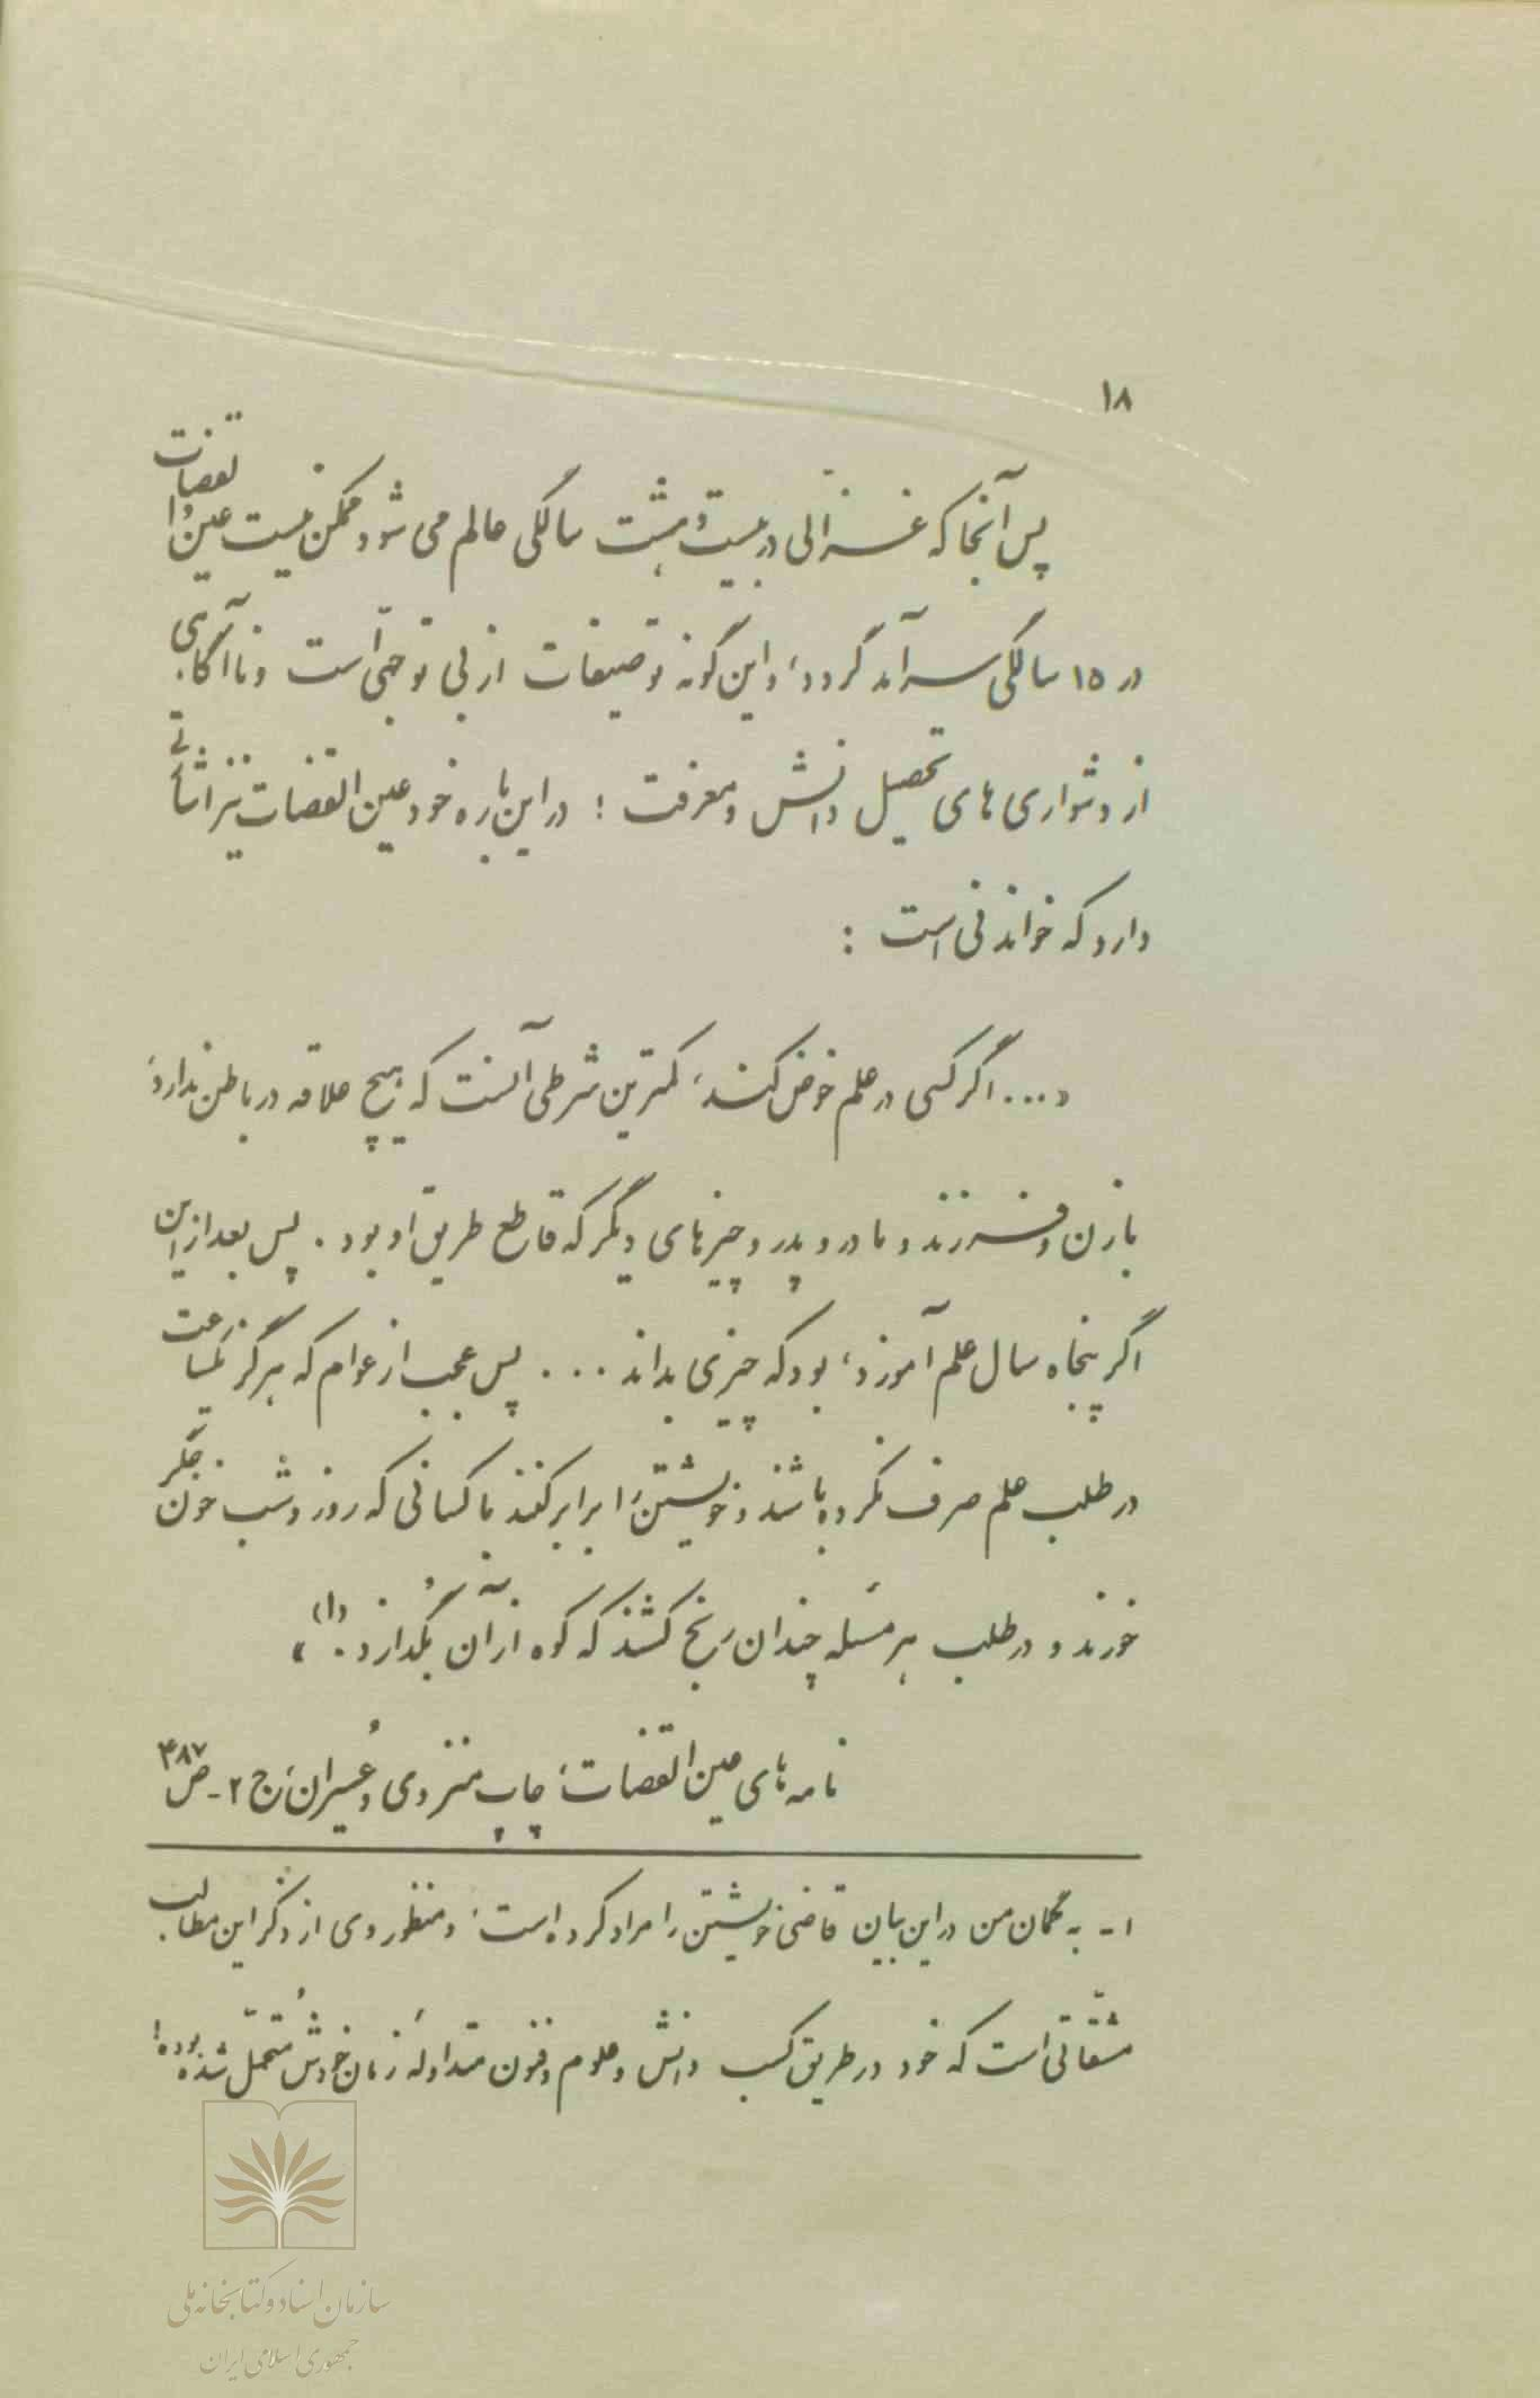 ۱۸
پس آنجا که غزّالی در بیست و هشت سالگی عالم می شود ممکن نیست عین القضات
در ۱۵ سالگی سرآمد گردد، و این گونه توصیفات از بی توجّهی است و ناآگاهی
از دشواری های تحصیل دانش و معرفت ؛ در این باره خود عین القضات نیز اشاراتی
دارد که خواندنی است :
«... اگر کسی در علم خوض کند، کمترین شرطی آنست که هیچ علاقه در باطن ندارد،
با زن و فرزند و مادر و پدر و چیزهای دیگر که قاطع طریق او بود . پس بعد از این
اگر پنجاه سال علم آموزد، بود که چیزی بداند ... پس عجب از عوام که هرگز یکساعت
در طلب علم صرف نکرده باشند و خویشتن را برابر کنند با کسانی که روز و شب خون جگر
خورند و در طلب هر مسئله چندان رنج کشند که کوه از آن بگدازد .(۱)»
نامه های عین القضات، چاپ منزوی و عُسیران، ج ۲ - ص ۴۸۷
۱ - به گمان من در این بیان قاضی خویشتن را مراد کرده است، و منظور وی از ذکر این مطالب
مشقّاتی است که خود در طریق کسب دانش و علوم و فنون متداولهٔ زمان خودش مُتحمّل شده بوده!
سازمان اسناد و کتابخانه ملی
جمهوری اسلامی ایران